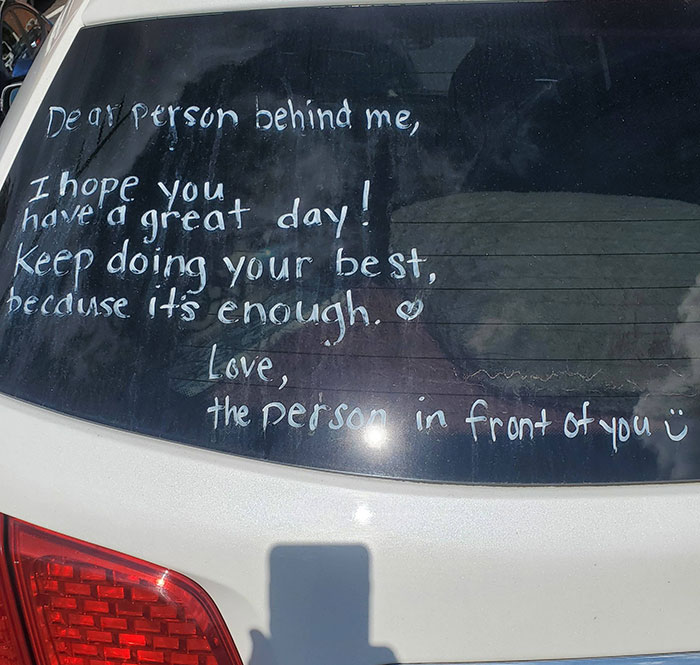 Dear person behind me,
I hope you
have a great day!
Keep doing your best,
because it's enough. ♡
Love,
the person in front of you ü